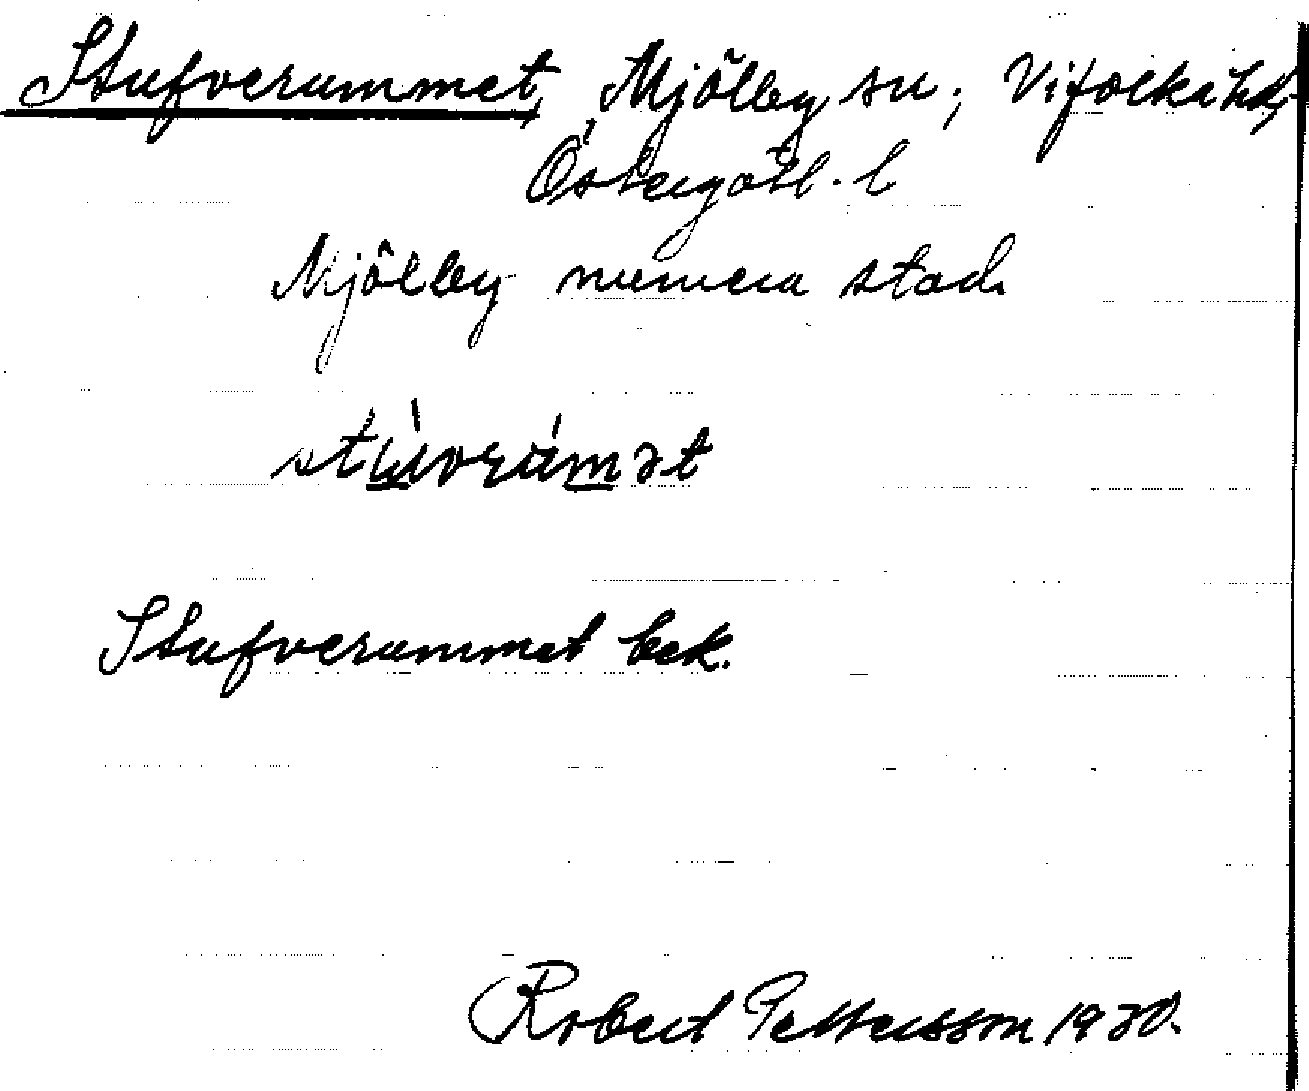 Stufverummet, Mjölby sn; Vifolka hd,
Östergötl. l
Mjölby numera stad.
Stufverummet bek.
Robert Pettersson 1930.